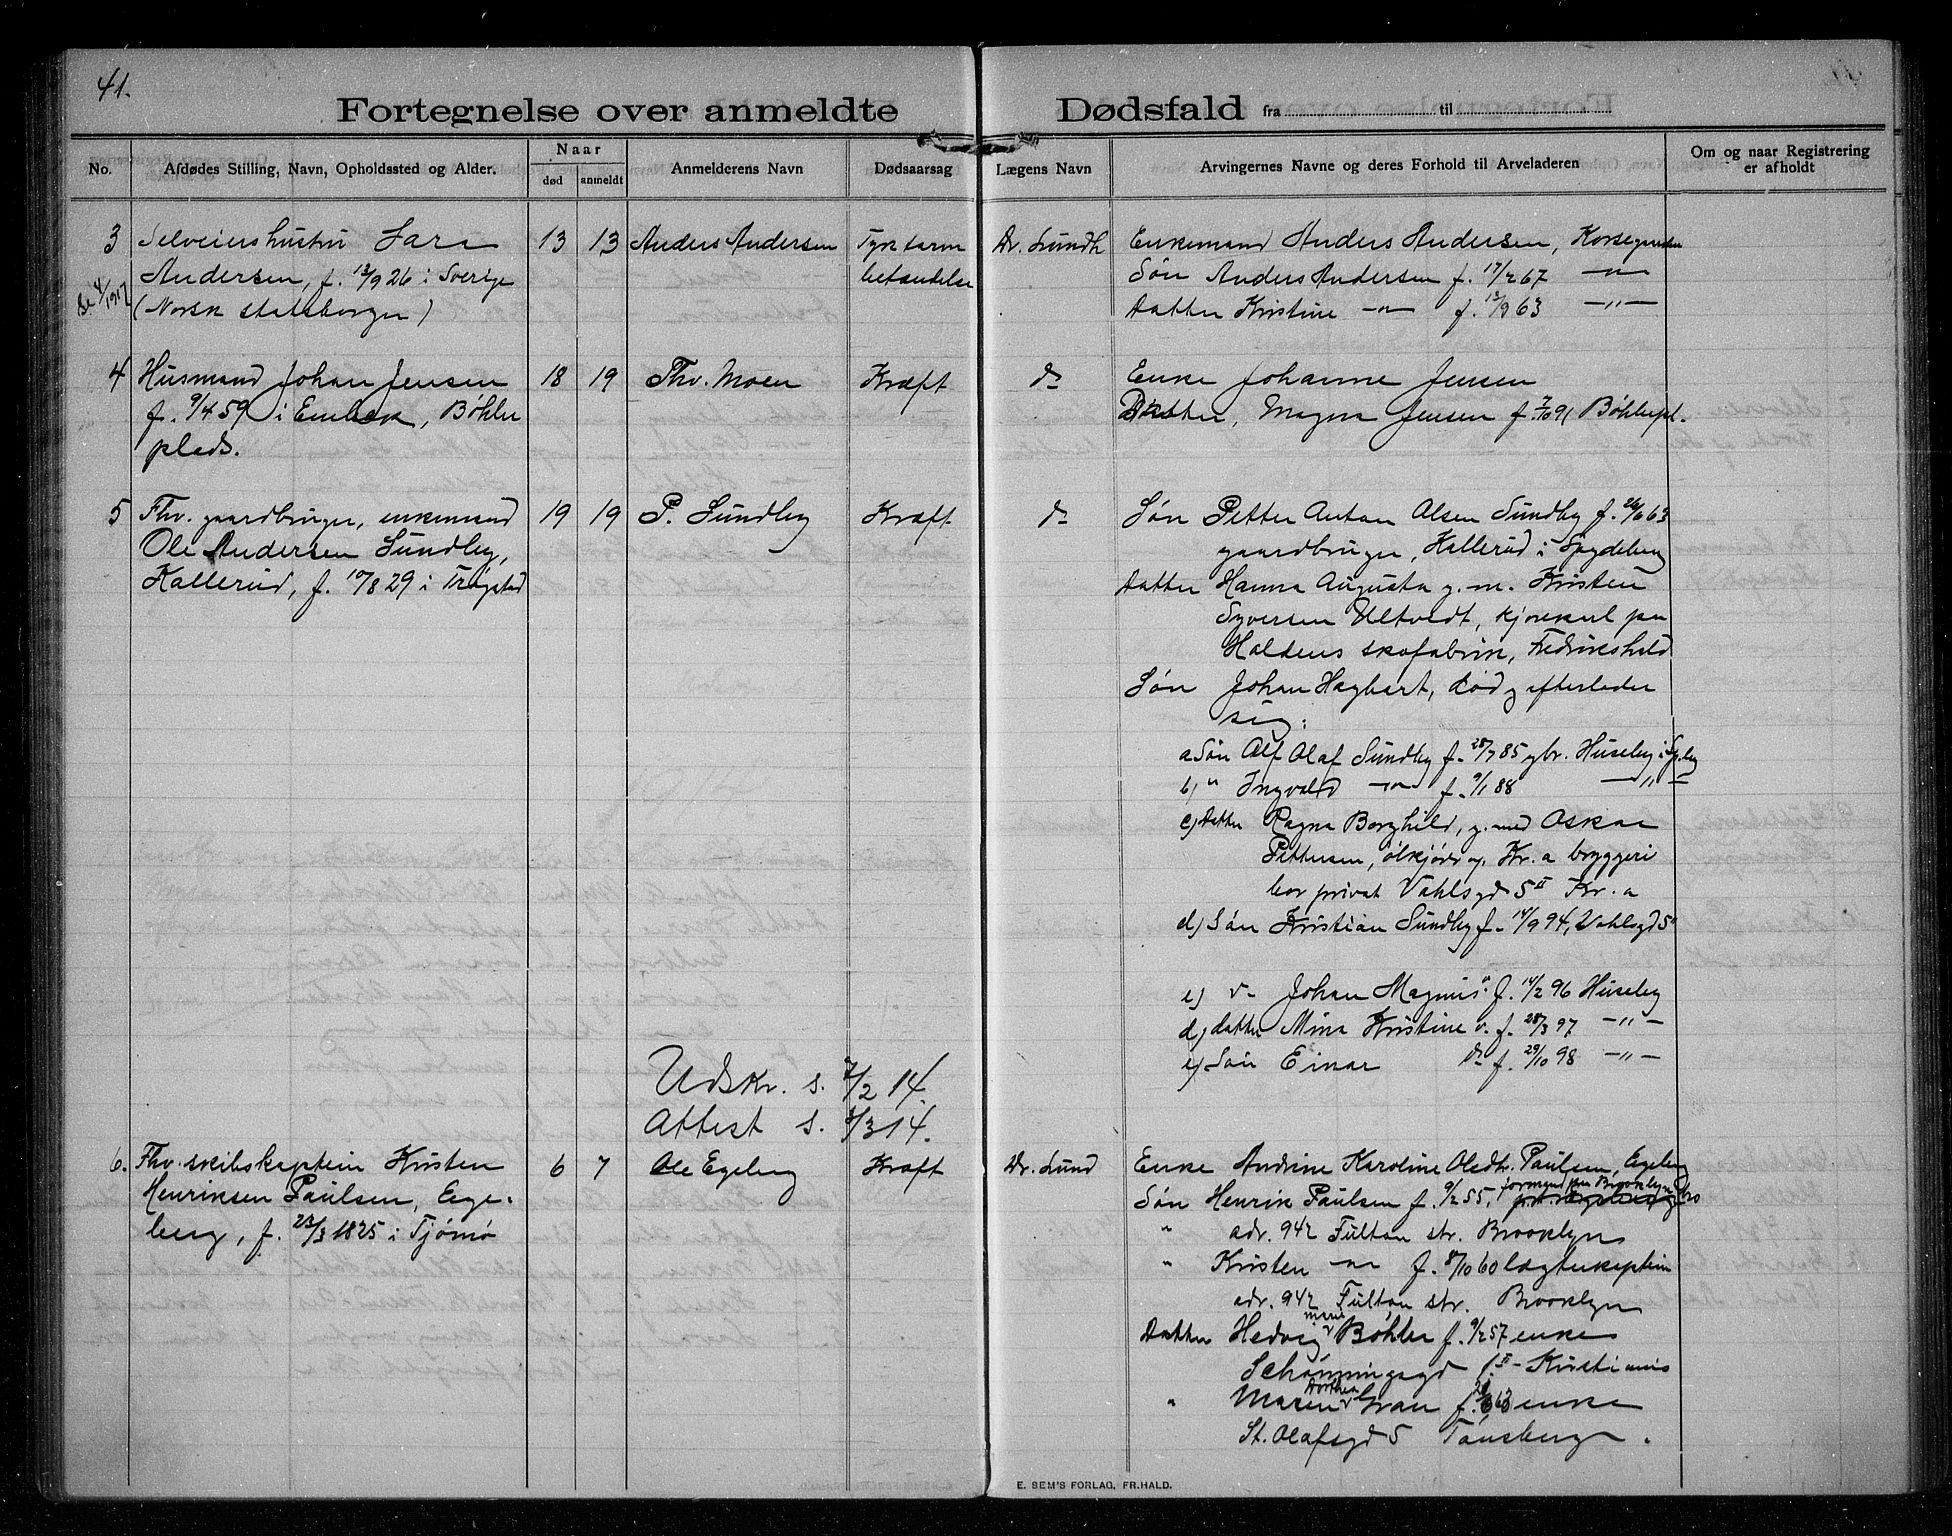 41.
Fortegnelse over anmeldte Dødsfald fra til
No.
Afdødes Stilling, Navn, Opholdssted og Alder.
Naar
død
anmeldt
Anmelderens Navn
Dødsaarsag
Lægens Navn
Arvingernes Navne og deres Forhold til Arveladeren
Om og naar Registrering
er afholdt
3 Selveiershustru Lars 13 13 Anders Andersen Tyktarm Dr. Lundh Enkemand Anders Andersen, Korsegaarden
Andersen, f. 13/9 26 i Sverige betændelse Søn Anders Andersen f. 17/2 67 -"-
(Norsk statsborger) Datter Kristine -"- f. 13/9 63 -"-
4 Husmand Johan Jensen 18 19 Thv. Moen Kræft do Enke Johanne Jensen
f. 9/4 59 i Enebak, Bøhler Datter, Magna Jensen f 7/10 91 Bøhlerpl.
plads.
5 Fhv. gaardbruger, enkemand 19 19 P. Sundby Kræft do Søn Petter Anton Olsen Sundby f. 26/6 63
Ole Andersen Sundby, gaardbruger, Kallerud i Spydeberg
Kallerud, f. 10/8 29 i Trøgstad Datter Hanna Augusta g. m. Kristen
Syversen Ultvedt, kjørekarl paa
Haldens skofabrik, Fredrikshald
Søn Johan Hagbart, død og efterlader
sig:
a Søn Alf Olaf Sundby f. 28/7 85 gbr. Huseby i Sp.berg
b) " Ingvald -"- f. 9/1 88 -"-
c) Datter Ragna Borghild, g. med Oskar
Pettersen, ølkjører v. Kr.a bryggeri
bor privat Vahlsgd 5 II Kr.a
d) Søn Kristian Sundby f. 14/9 94, Vahlsgd 5 II
e) v- Johan Magnus " f. 14/2 96 Huseby
d) datter Mina Kristine v. f. 28/3 97 -"-
e) Søn Einar do f. 29/10 98 -"-
Udskr. s. 7/2 14.
Attest s. 3/3 14.
6. Fhv. skibskaptein Kristen 6 7 Ole Egeberg Kræft Dr. Lund Enke Andrine Karoline Oledtr. Paulsen, Egeberg
Henriksen Paulsen, Ege- Søn Henrik Paulsen f. 9/2 55, formand paa Brooklyn
berg, f. 23/3 1825 i Tjømø " adr. 942 Fulton str. Brooklyn
" Kristen -"- f. 8/10 60 lægterkaptein
adr. 942 Fulton str. Brooklyn
Datter Hedvig Marie Bøhler f. 9/2 57 enke
Schønningsgd 1 II - Kristiania
" Maren Dorthea Gran f. 63 enke
St. Olafsgd 5 Tønsberg.
E. SEM'S FORLAG, FR.HALD.